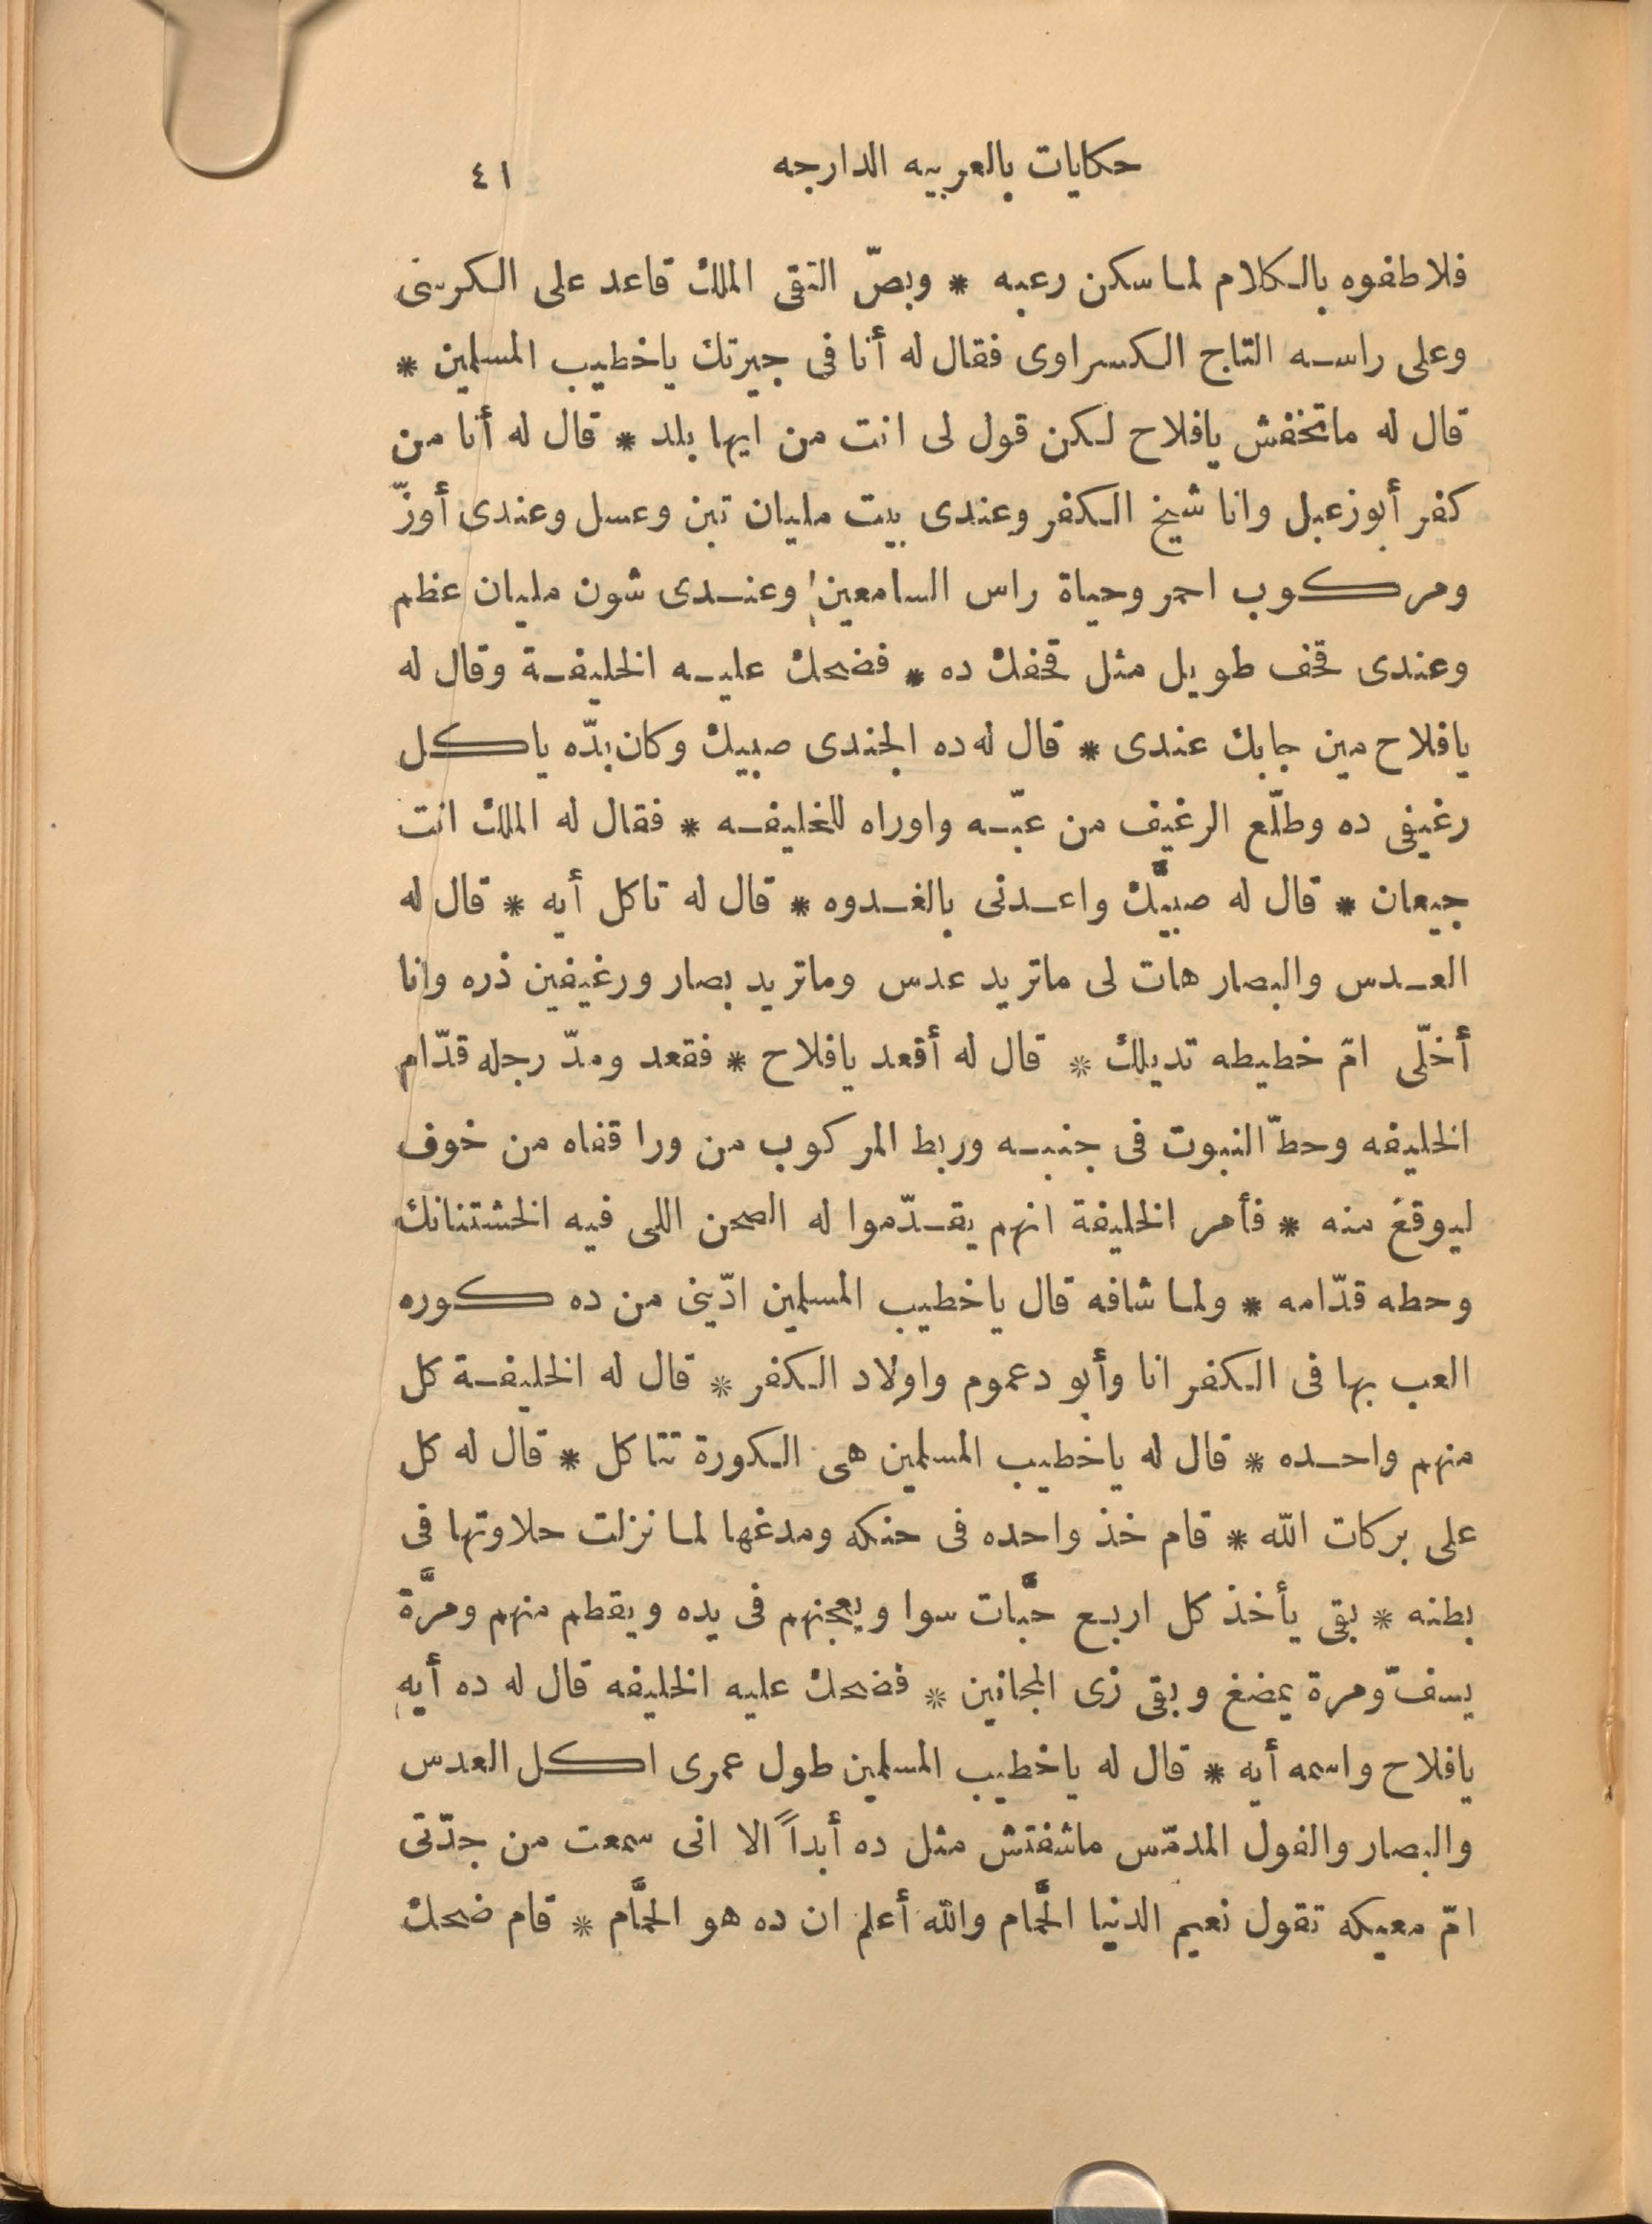 حكايات بالعربيه الدارجه ٤١
فلاطفوه بالكلام لما سكن رعبه * وبصّ التقى الملك قاعد على الكرسى
وعلى راسه التاج الكسراوى فقال له أنا فى جيرتك ياخطيب المسلمين *
قال له ماتخفش يافلاح لكن قول لى انت من ايها بلد * قال له أنا من
كفر أبوزعبل وانا شيخ الكفر وعندى بيت مليان تبن وعسل وعندى أوزّ
ومركوب احمر وحياة راس السامعين وعندى شون مليان عظم
وعندى قحف طويل مثل قحفك ده * فضحك عليه الخليفة وقال له
يافلاح مين جابك عندى * قال له ده الجندى صبيك وكان بدّه ياكل
رغيفى ده وطلّع الرغيف من عبّه واوراه للخليفه * فقال له الملك انت
جيعان * قال له صبيَّك واعدنى بالغدوه * قال له تاكل أيه * قال له
العدس والبصار هات لى ماتريد عدس وماتريد بصار ورغيفين ذره وانا
أخلّى امّ خطيطه تديلك * قال له أقعد يافلاح * فقعد ومدّ رجله قدّام
الخليفه وحطّ النبوت فى جنبه وربط المركوب من ورا قفاه من خوف
ليوقعَ منه * فأمر الخليفة انهم يقدّموا له الصحن اللى فيه الخشتنانك
وحطه قدّامه * ولما شافه قال ياخطيب المسلمين ادّينى من ده كوره
العب بها فى الكفر انا وأبو دعموم واولاد الكفر * قال له الخليفة كل
منهم واحده * قال له ياخطيب المسلمين هى الكورة تتاكل * قال له كل
على بركات الله * قام خذ واحده فى حنكه ومدغها لما نزلت حلاوتها فى
بطنه * بقى يأخذ كل اربع حبَّات سوا ويعجنهم فى يده ويقطم منهم ومرَّة
يسفّ ومرة يمضغ وبقى زى المجانين * فضحك عليه الخليفه قال له ده أيهِ
يافلاح واسمه أيه * قال له ياخطيب المسلمين طول عمرى اكل العدس
والبصار والفول المدمّس ماشفتش مثل ده أبداً الا انى سمعت من جدّتى
امّ معيكه تقول نعيم الدنيا الحمَّام والله أعلم ان ده هو الحمَّام * قام ضحك